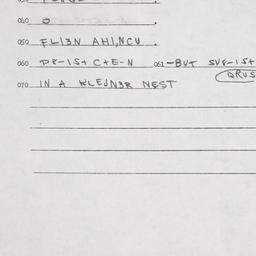 040 O
050 FLI3N AHI,NCU.
060 PR-IS+ C+E-N 061 -BUT SUR-IS+
QRUS
070 IN A KLEJN3R NEST